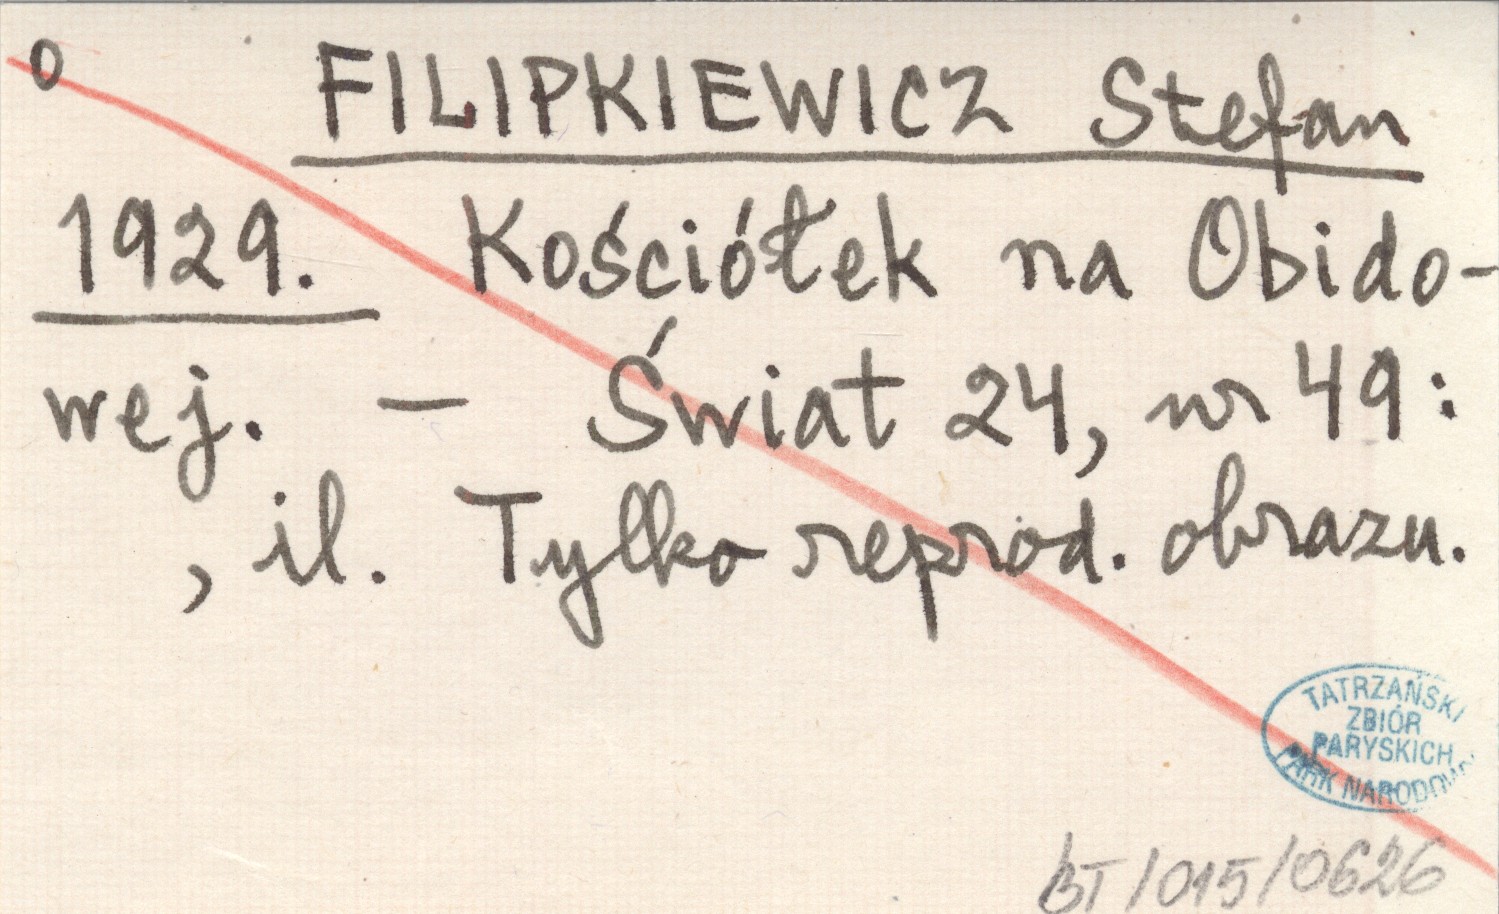 o FILIPKIEWICZ Stefan
1929. Kościółek na Obido-
wej. - Świat 24, nr 49:
, il. Tylko reprod. obrazu.
TATRZAŃSKI
ZBIÓR
PARYSKICH
PARK NARODOWY
BT/015/0626